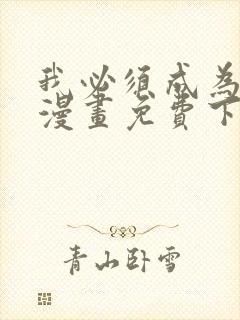 我必须成为
漫畫免費下
青山卧雪